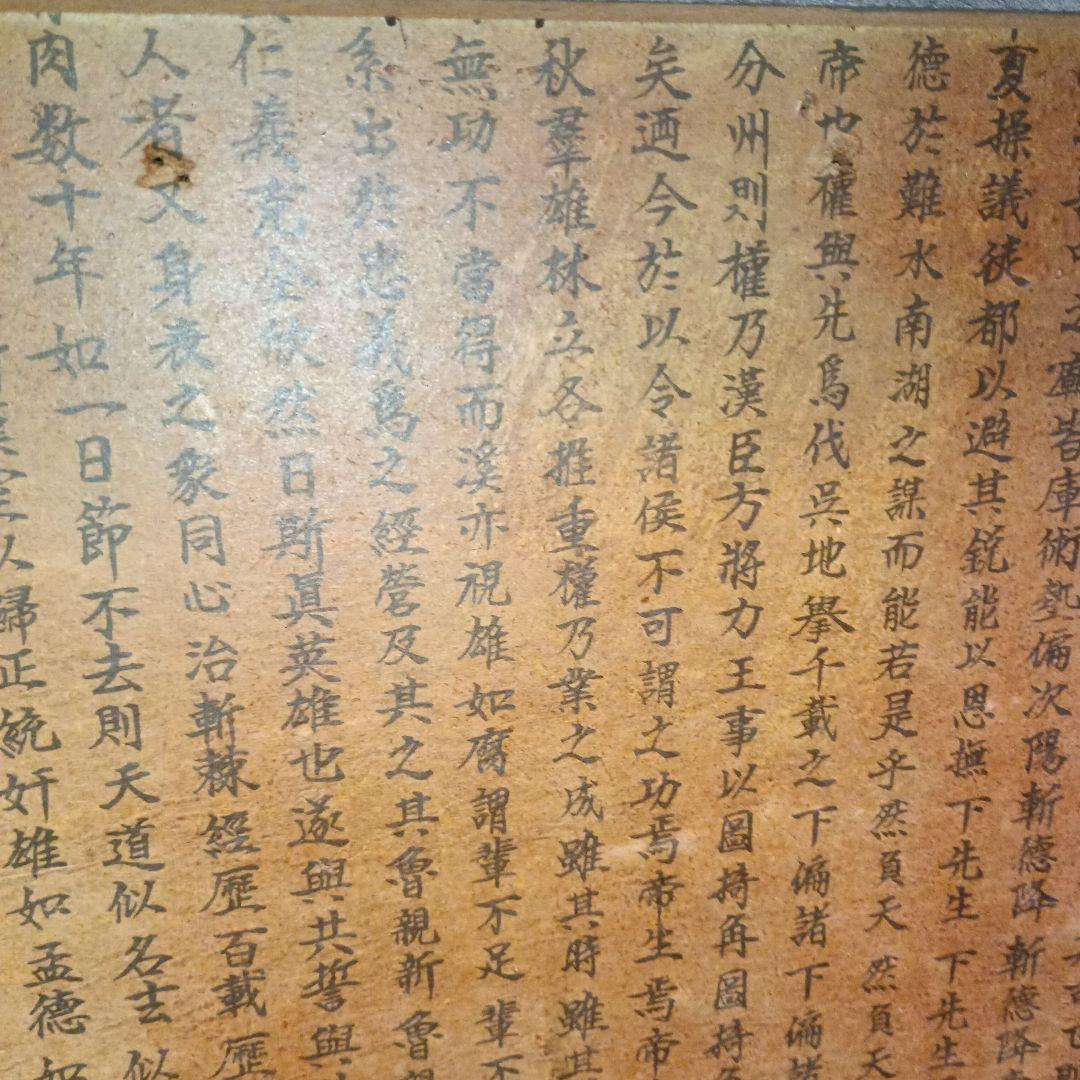 之廟 庫術 偏次陽斬德降斬德降
夏操議徒都以避其銳能以恩撫下先生下先生
德於難水南湖之謀而能若是乎然頁天然頁天
帝也權與先為伐吳地舉千載之下偏諸下偏諸
分州則權乃漢臣方將力王事以圖持再圖持
矣迺今於以令諸侯不可謂之功焉帝生焉帝
秋羣雄林立各推重權乃業之成雖其時雖其
無功不當得而溪亦視雄如腐謂輩不足輩不
系出於忠義為之經營及其之其魯親新魯親
仁義克全欣然日斯眞英雄也遂與共誓與
人者又身衰之眾同心治斬棘經歷百載歷
肉数十年如一日節不去則天道似名去似
以歸正統奸雄如孟德如